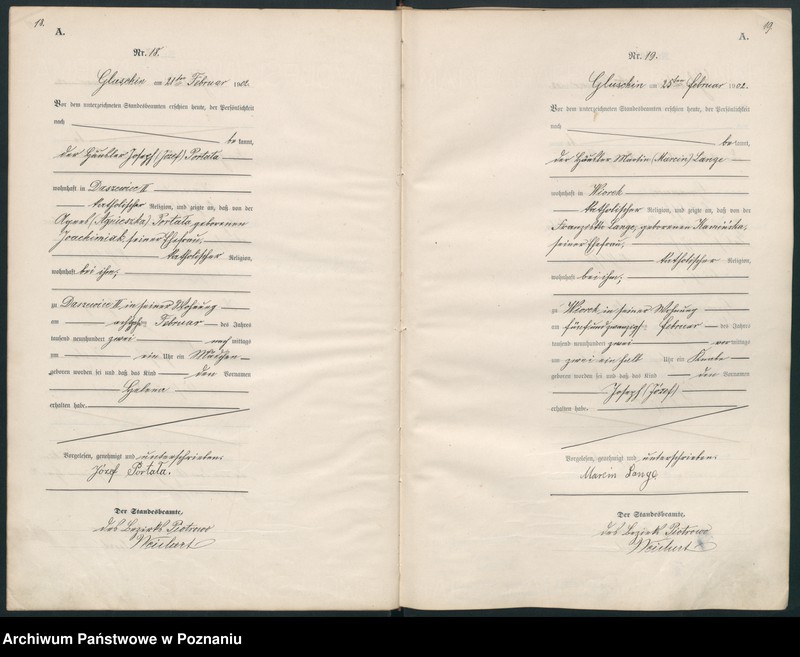 18.
A.
Nr. 18.
Gluschin am 21ten Februar 1902.
Vor dem unterzeichneten Standesbeamten erschien heute, der Persönlichkeit
nach
be kannt,
der Häusler Joseph (Józef) Portala
wohnhaft in Daszewice II
katholischer Religion, und zeigte an, daß von der
Agnes (Agnieszka) Portala geborenen
Joachimiak, seiner Ehefrau,
katholischer Religion,
wohnhaft bei ihm;
zu Daszewice II, in seiner Wohnung
am Februar des Jahres
tausend neunhundert zwei nach mittags
um ein Uhr ein Mädchen
geboren worden sei und daß das Kind den Vornamen
Helena
erhalten habe.
Vorgelesen, genehmigt und unterschrieben.
Józef Portala.
Der Standesbeamte.
des Bezirks Piotrowo
Weichert
19.
A.
Nr. 19.
Gluschin am 25ten Februar 1902.
Vor dem unterzeichneten Standesbeamten erschien heute, der Persönlichkeit
nach
be kannt,
der Häusler Martin (Marcin) Lange
wohnhaft in Wiorek
katholischer Religion, und zeigte an, daß von der
Franziska Lange, geborenen Kamińska,
seiner Ehefrau,
katholischer Religion,
wohnhaft bei ihm;
zu Wiorek in seiner Wohnung
am fünfundzwanzigsten Februar des Jahres
tausend neunhundert zwei vor mittags
um zwei ein halb Uhr ein Knabe
geboren worden sei und daß das Kind den Vornamen
Joseph (Józef)
erhalten habe.
Vorgelesen, genehmigt und unterschrieben.
Marcin Lange
Der Standesbeamte.
des Bezirks Piotrowo
Weichert
Archiwum Państwowe w Poznaniu